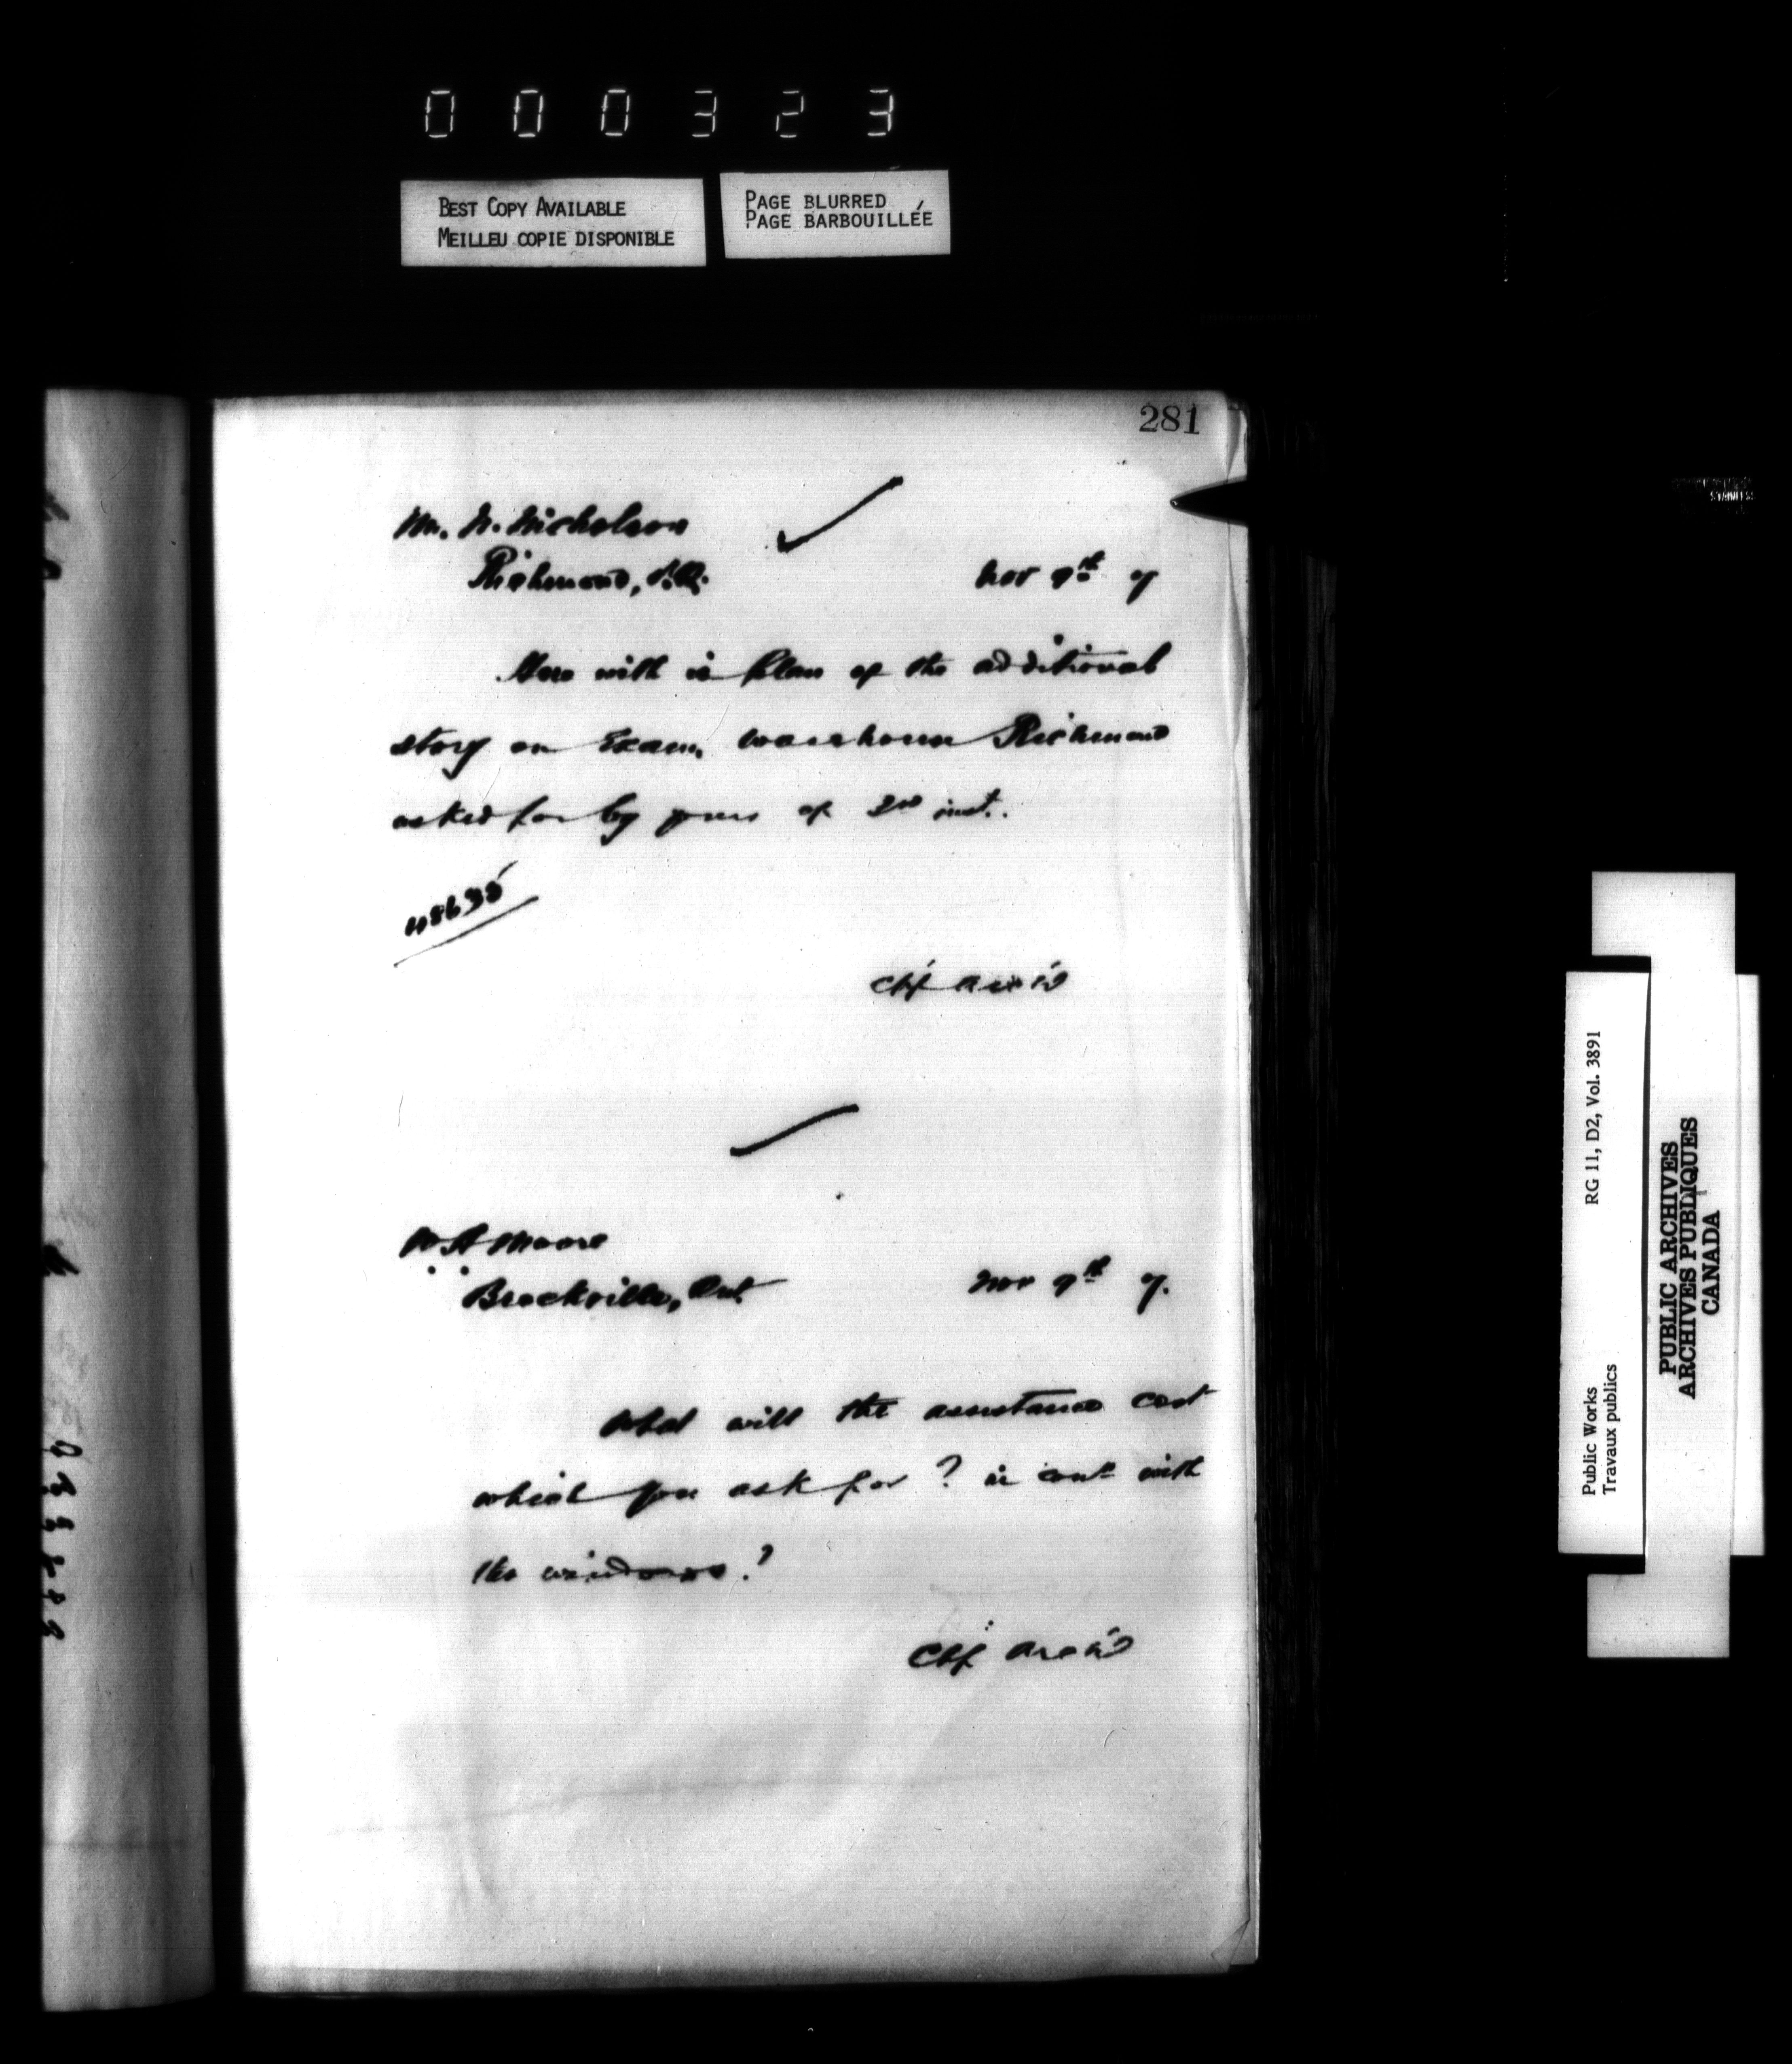 000323
BEST COPY AVAILABLE
MEILLEU COPIE DISPONIBLE
PAGE BLURRED
PAGE BARBOUILLÉE
281
Mr. N. Nicholson
Richmond, P.Q.
Nov 9th 7
Here with is plan of the additional
story on Exam. warehouse Richmond
asked for by yours of 3rd inst.
Chf Arch't
W A Moore
Brockville, Ont
Nov 9th 7.
What will the assistance cost
which you ask for? in conn with
the windows?
Chf Arch't
Public Works
Travaux publics
RG 11, D2, Vol. 3891
PUBLIC ARCHIVES
ARCHIVES PUBLIQUES
CANADA